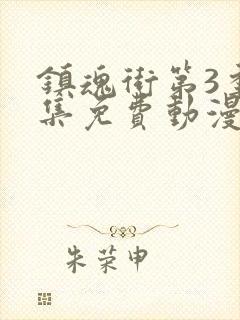 鎮魂街第3季
集免費動漫
朱荣申